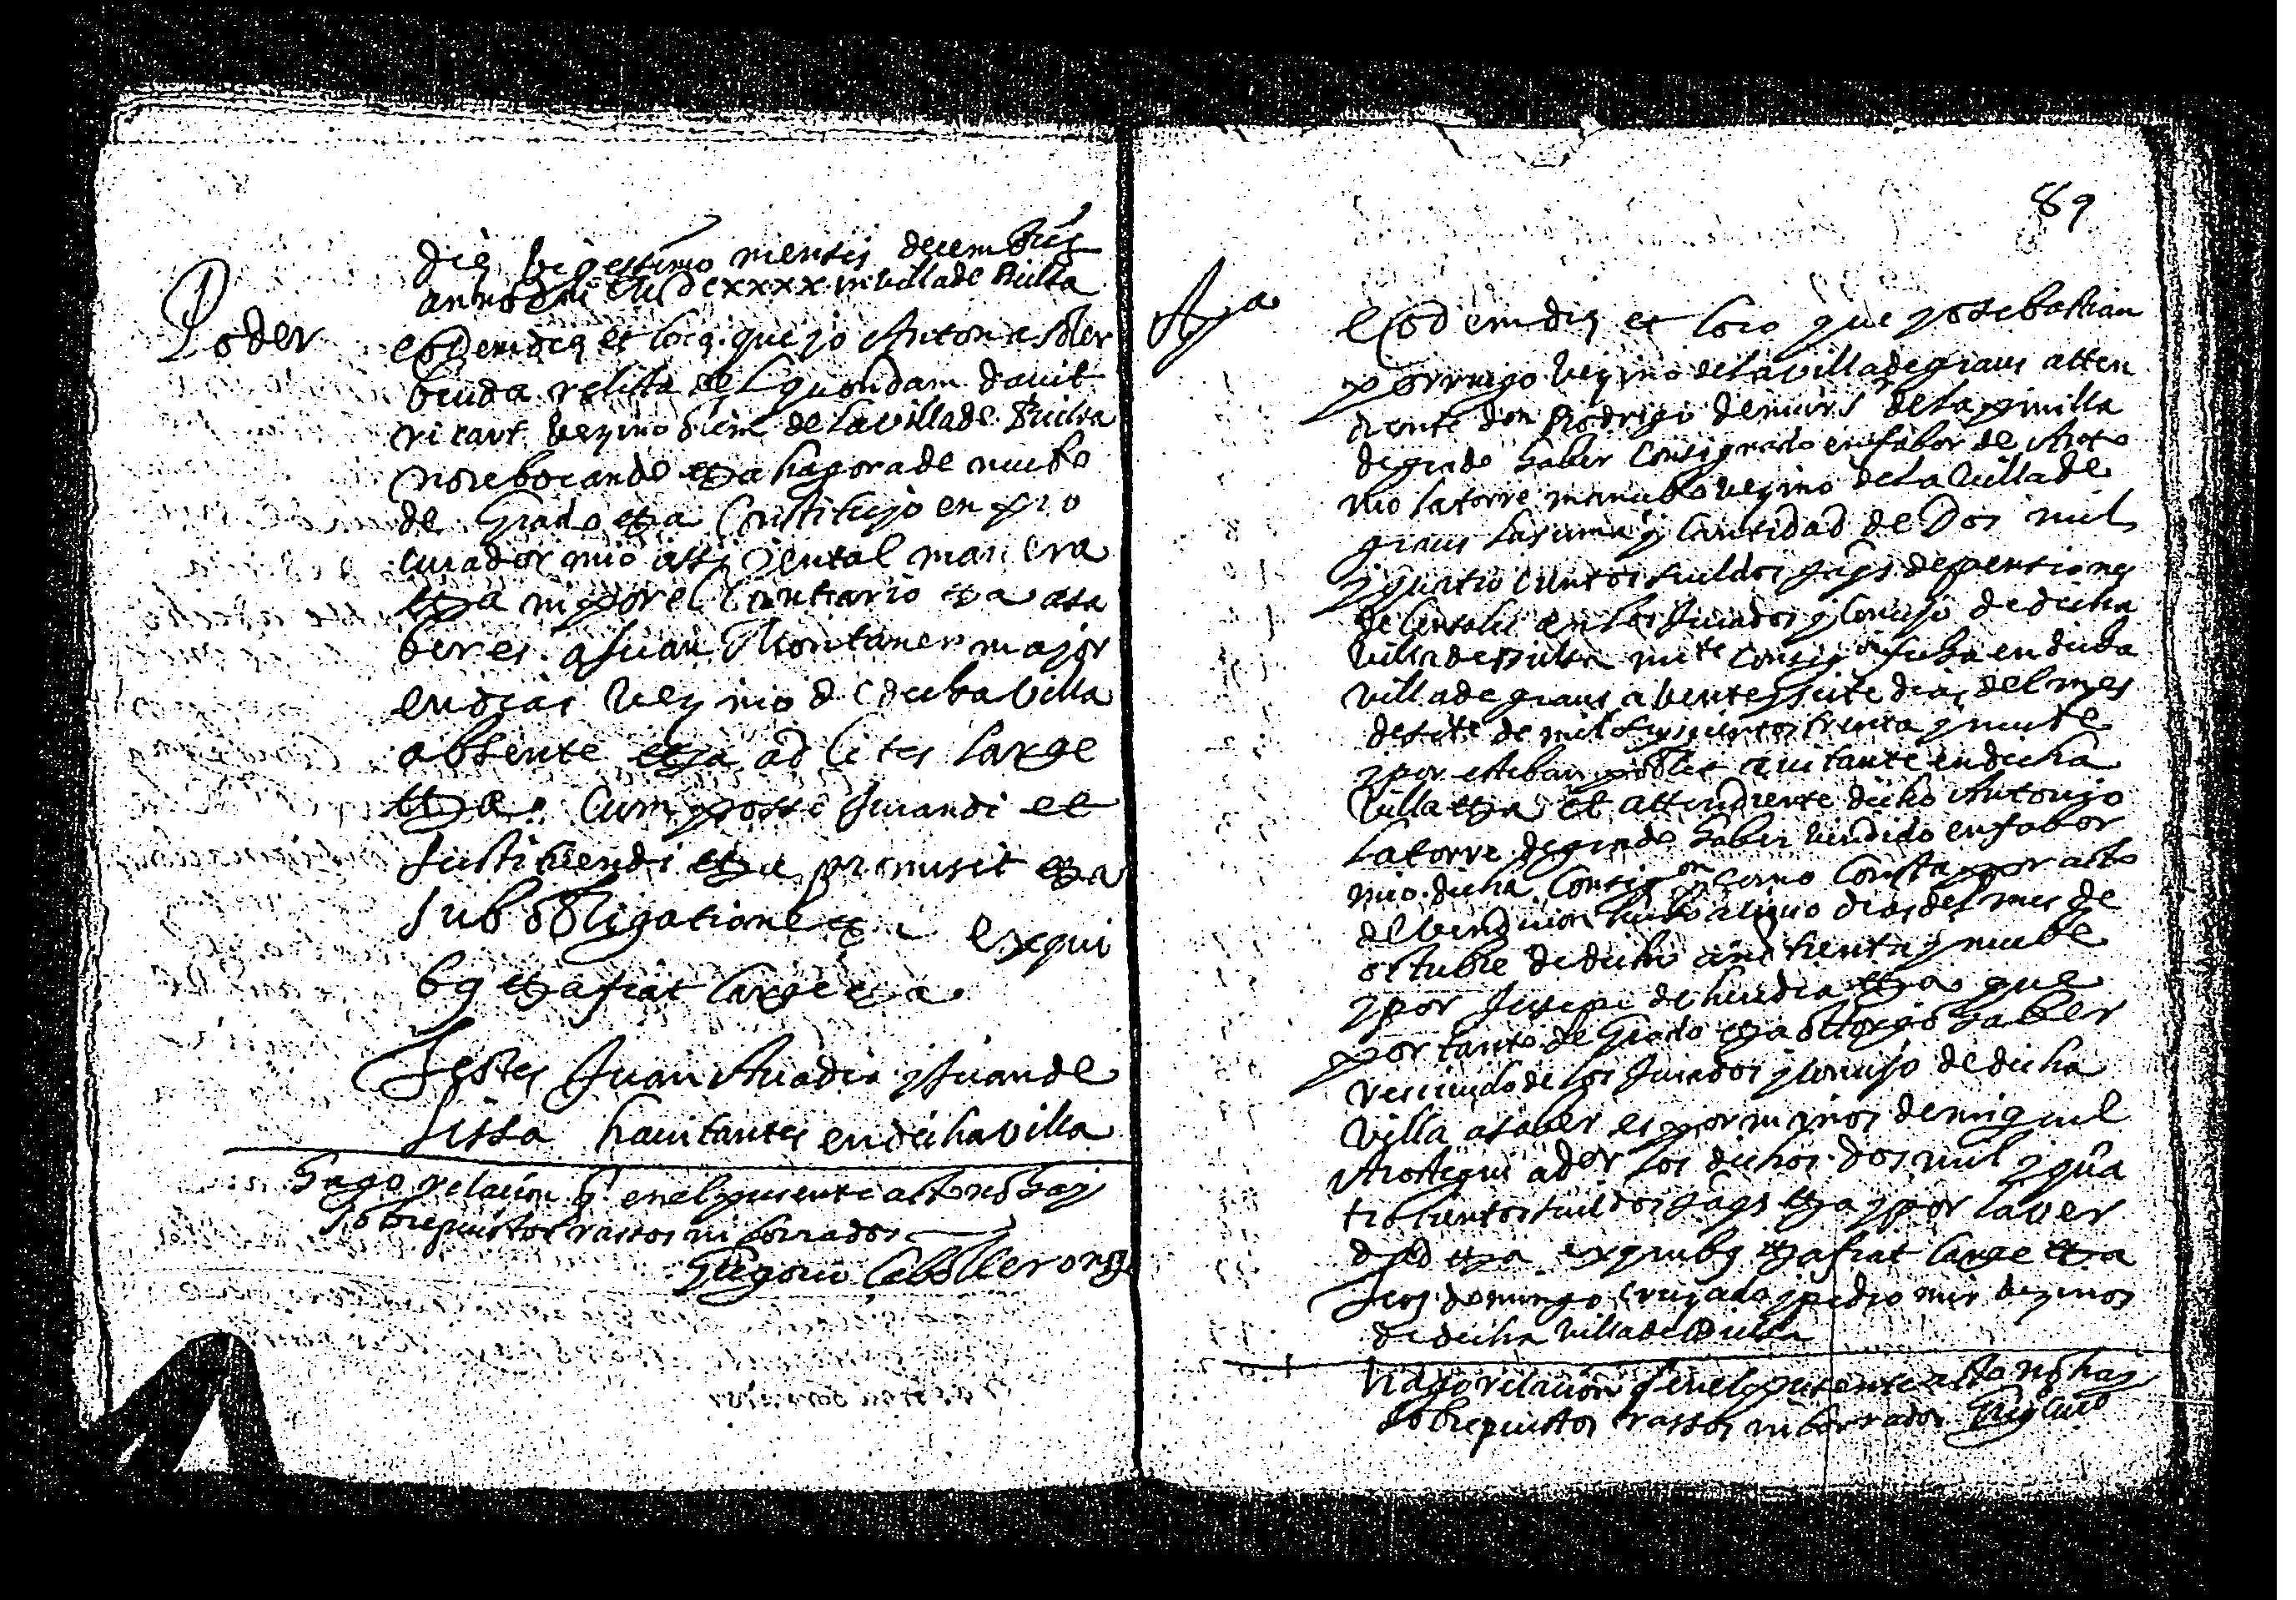 die bigessimo mensis decembris
anno dni MDCXXXX in villa de Builta
Poder
eisdem die et loco. que yo Antona Soler
biuda relicta del quondam dauit
ricart bezino que fue de la villa de Builta
no rebocando etza hagora de nuebo
de Grado etza Constituyo en pro
curador mio assi en tal manera
etza ni por el Contrario etza asa
ber es. a Juan Montaner mayor
en dias bezino de dicha villa
absente etza ad lites large
etza. Cum posse Jurandi et
sustituendi etza promisit etza
sub obligatione etza exqui
bq etza fiat large etza
Testes Juan Auadia y Juan de
Sissa hauitantes en dicha villa
Hago relacion q en el presente acto no hay
sobrepuestos rassos ni borrados
Gregorio Caballero nro
89
Apa
Eisdem die et loco que yo sebastian
porruego bezino de la villa de graus atten
diente don Rodrigo de mur sr de la pinilla
de grado haber consignado en fabor de Anto
nio latorre menublo bezino de la villa de
graus la suma y cantidad de Dos mil
y quatro cientos sueldos jaqs de pensiones
de censales en los Jurados y Concejo de dicha
villa de Builta mte consigon fecha en dicha
villa de graus a bente y siete dias del mes
de sete de mil seyscientos trenta y nuebe
y por esteban poblet auitante en dicha
villa etza et attendiente dicho Antonyo
latorre de grado haber bendido en fabor
mio dicha Consigon como Consta por acto
de bendicion hecho a cinco dias del mes de
octubre de dicho año trenta y nuebe
y por Jusepe de heredia etza que
por tanto de Grado etza attorgo haber
reciuido de los Jurados y Concejo de dicha
villa asaber es por manos de miguel
Arostegui ador los dichos dos mil y qua
trocientos sueldos jaqs etza y por la ver
dad etza exquibq etza fiat large etza
Tes. domingo cruzado y pedro mir bezinos
de dicha villa de Builta
hago relacion q en el presente acto no hay
sobrepuestos rassos ni borrados